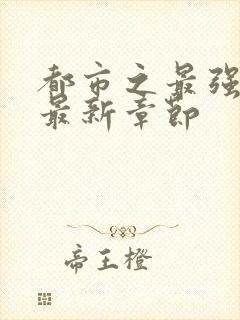 都市之最强
最新章节
帝王橙